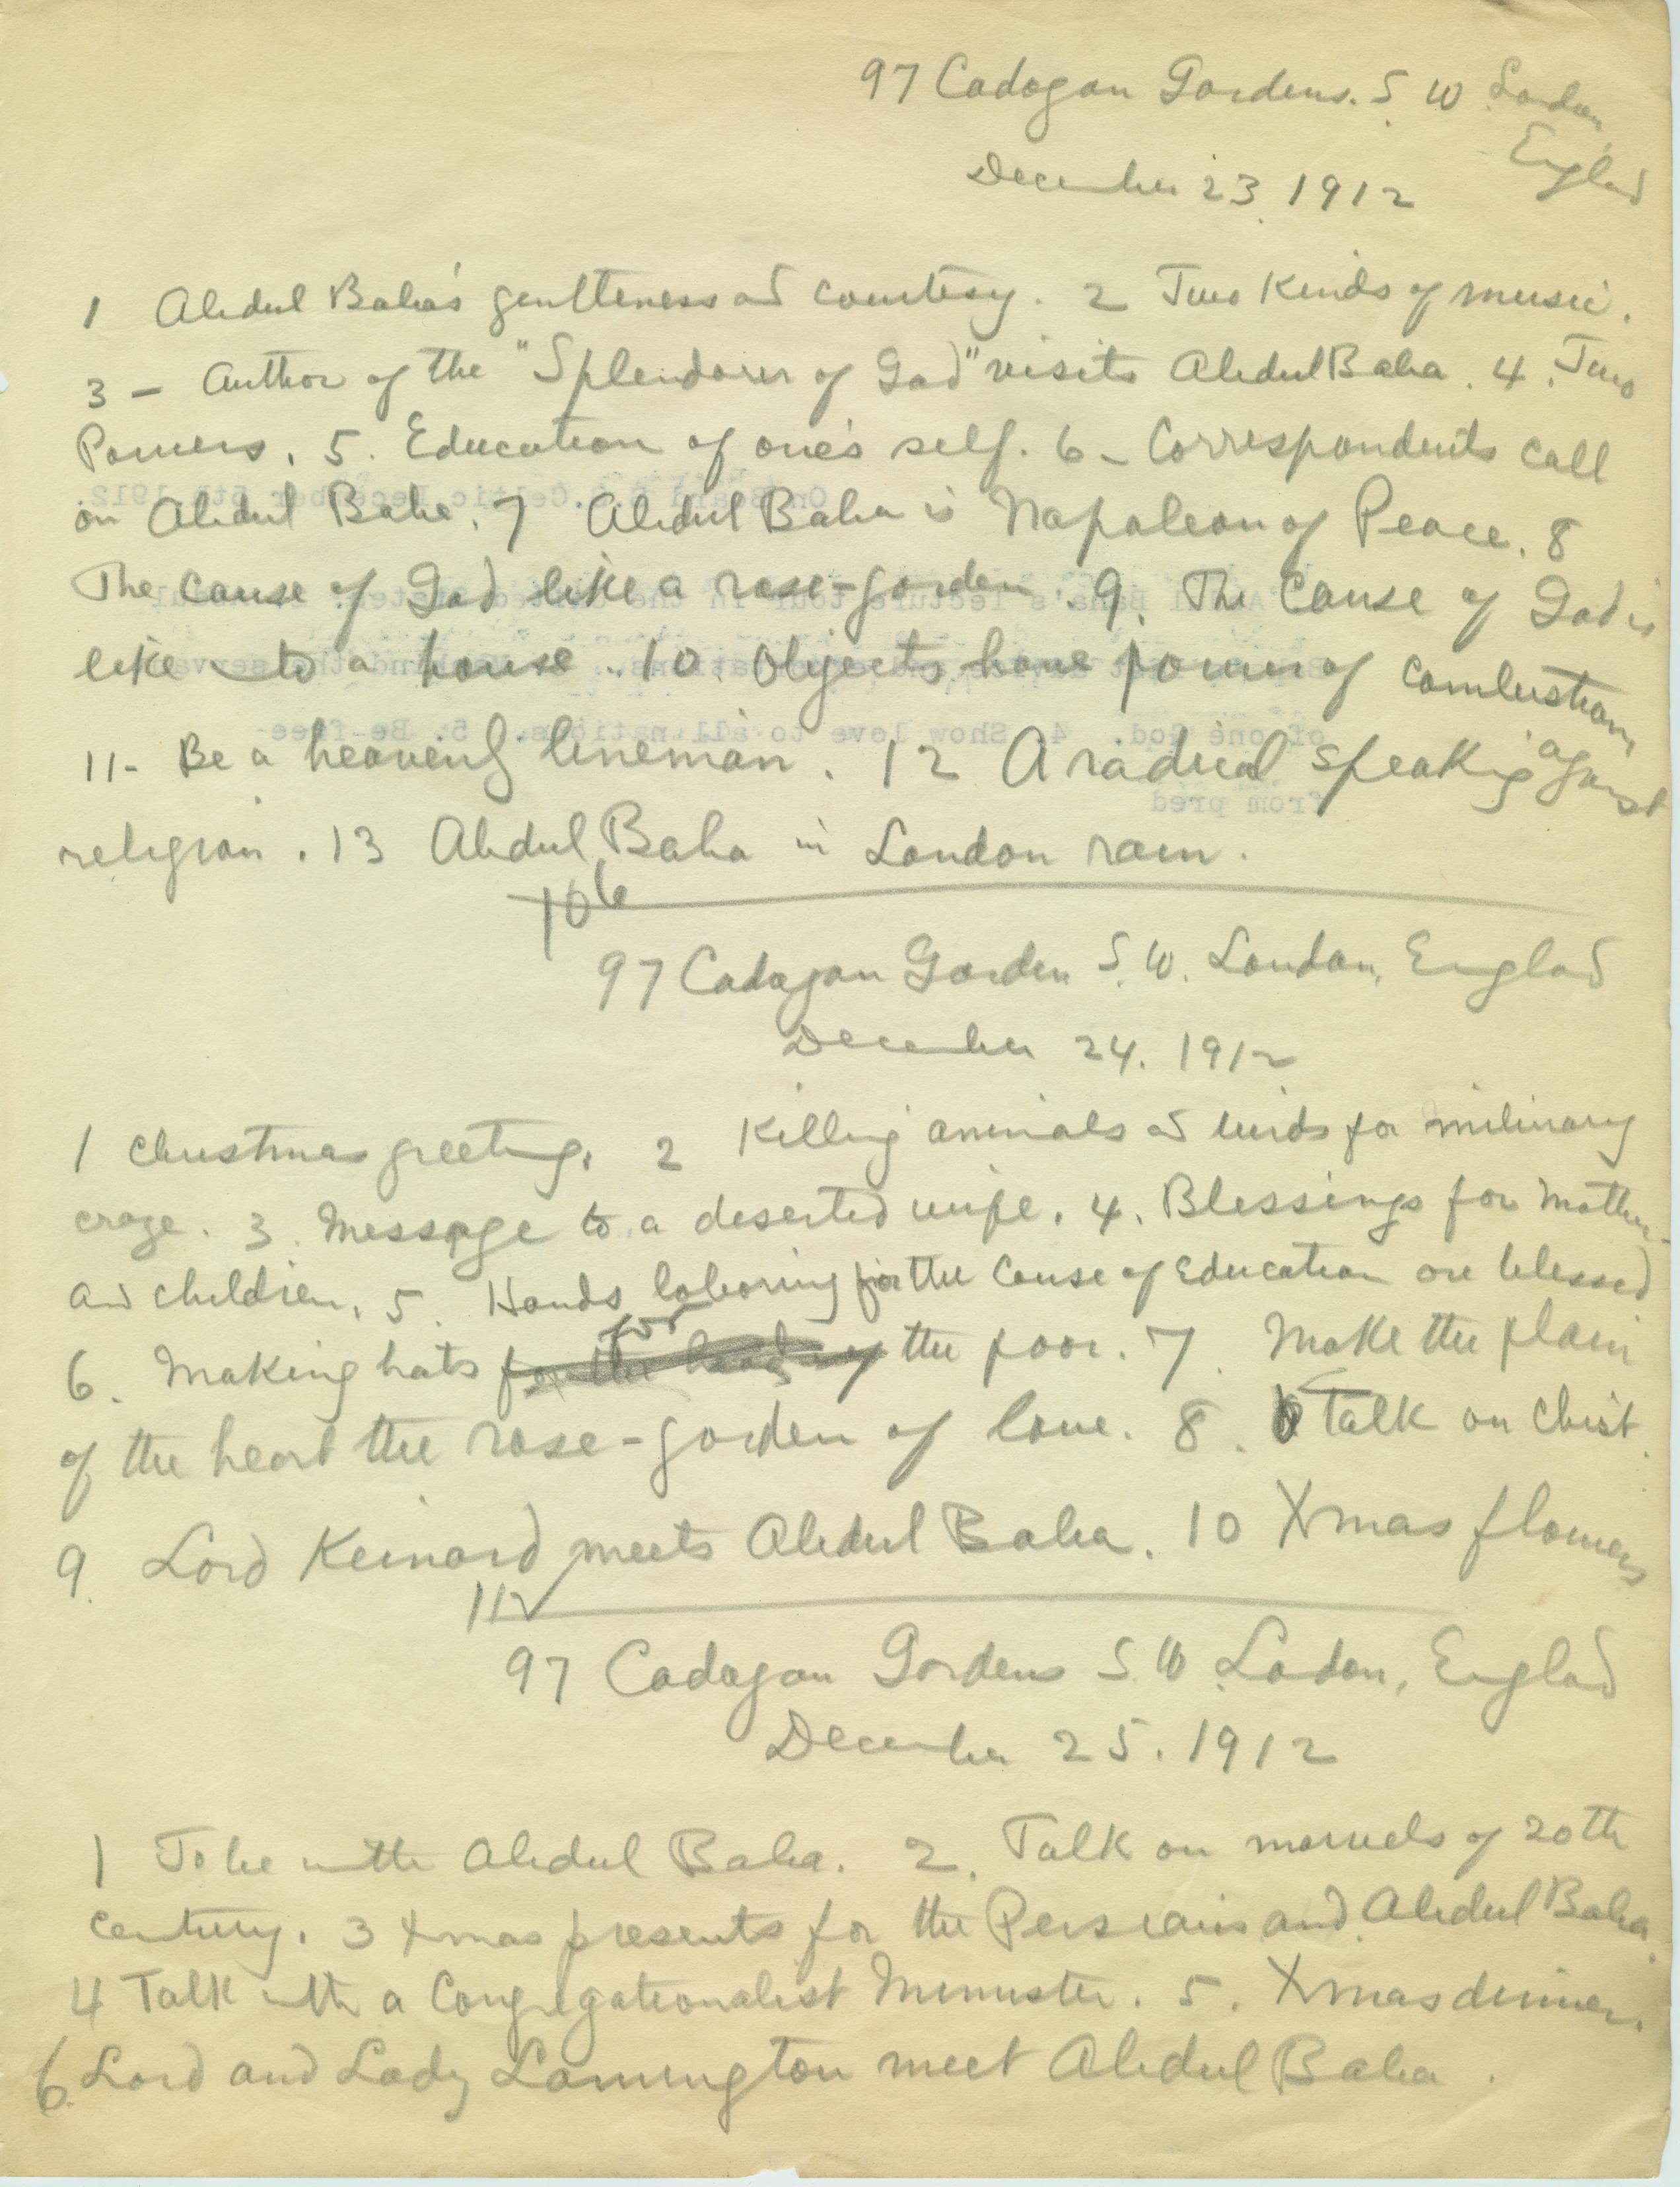 97 Cadogan Gardens. S W London
England
December 23. 1912
1 Abdul Baha's gentleness and courtesy. 2 Two Kinds of music.
3 - Author of the "Splendour of God" visits Abdul Baha. 4. Two
Powers. 5. Education of one's self. 6 - Correspondents call
on Abdul Baha. 7 Abdul Baha is Napoleon of Peace. 8
The Cause of God like a rose-garden. 9. The Cause of God is
like to a house. 10. Objects have power of combustion
11- Be a heavenly lineman. 12 A radical speaking against
religion. 13 Abdul Baha in London rain.
106
97 Cadogan Garden S. W. London, England
December 24. 1912
1 Christmas greeting. 2 Killing animals and birds for milinary
craze. 3. Message to a deserted wife. 4. Blessings for Mother
and children. 5. Hands laboring for the Cause of Education are blessed
6. Making hats for the poor. 7. Make the plain
of the heart the rose-garden of love. 8. Talk on Christ.
9. Lord Keinard meets Abdul Baha. 10 Xmas flowers
112
97 Cadogan Gardens S. W. London, England
December 25. 1912
1 To be with Abdul Baha. 2. Talk on marvels of 20th
Century. 3 Xmas presents for the Persians and Abdul Baha.
4 Talk with a Congregationalist Minister. 5. Xmas dinner.
6. Lord and Lady Lamington meet Abdul Baha.